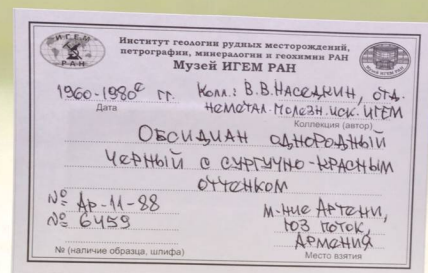 ИГЕМ
РАН
Институт геологии рудных месторождений,
петрографии, минералогии и геохимии РАН
Музей ИГЕМ РАН
1960-1980е гг.
Дата
Колл.: В.В. НАСЕДКИН, отд.
неметал. полезн. иск. ИГЕМ
Коллекция (автор)
ОБСИДИАН ОДНОРОДНЫЙ
ЧЕРНЫЙ С СУРГУЧНО-КРАСНЫМ
ОТТЕНКОМ
№ Ар-11-88
№ 6459
№ (наличие образца, шлифа)
М-НИЕ АРТЕНИ,
ЮЗ ПОТОК,
АРМЕНИЯ
Место взятия